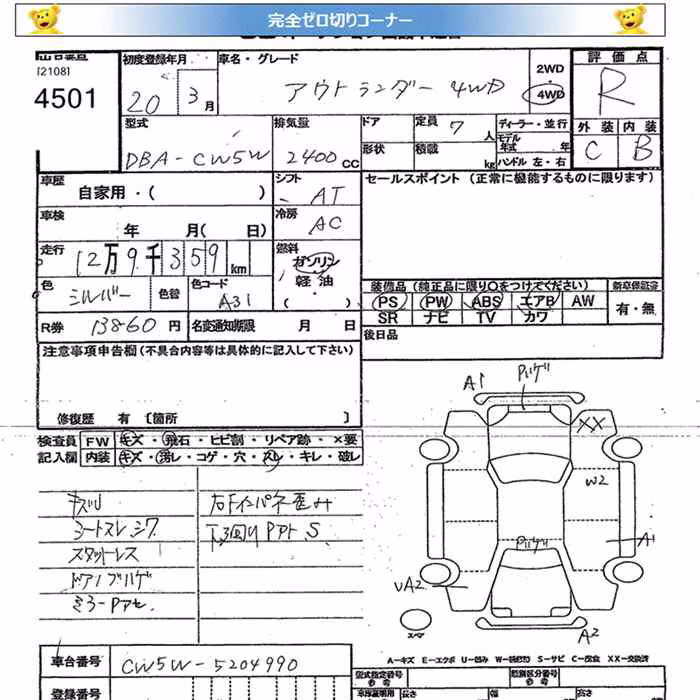 完全ゼロ切りコーナー
(2108)
4501
初度登録年月
20 3月
車名・グレード
アウトランダー 4WD
2WD
・
4WD
評価点
R
外装 内装
C B
型式
DBA-CW5W
排気量
2400cc
ドア
形状
定員 7人
積載 kg
ディーラー・並行
モデル年式 年
ハンドル 左・右
車歴
自家用・( )
シフト
AT
セールスポイント (正常に機能するものに限ります)
車検
年 月( 日)
冷房
AC
走行
12万9千359km
燃料
ガソリン
軽油
・( )
色
シルバー
色替
色コード
A31
装備品 (純正品に限り○をつけてください)
新車保証書
PS PW ABS エアB AW
SR ナビ TV カワ
有・無
R券 13860円
名変通知期限 月 日
後日品
注意事項申告欄 (不具合内容等は具体的に記入して下さい)
修復歴 有〔箇所 〕
検査員記入欄
FW キズ・飛石・ヒビ割・リペア跡・×要
内装 キズ・汚レ・コゲ・穴・スレ・キレ・破レ
シートスレ シワ
スタットレス
右Fインパネ歪み
A1
XX
W2
A1
UA2
A2
スペア
A-キズ E-エクボ U-凹み S-サビ C-腐食 XX-交換済
車台番号
CW5W-5204990
型式指定番号
類別区分番号
登録番号